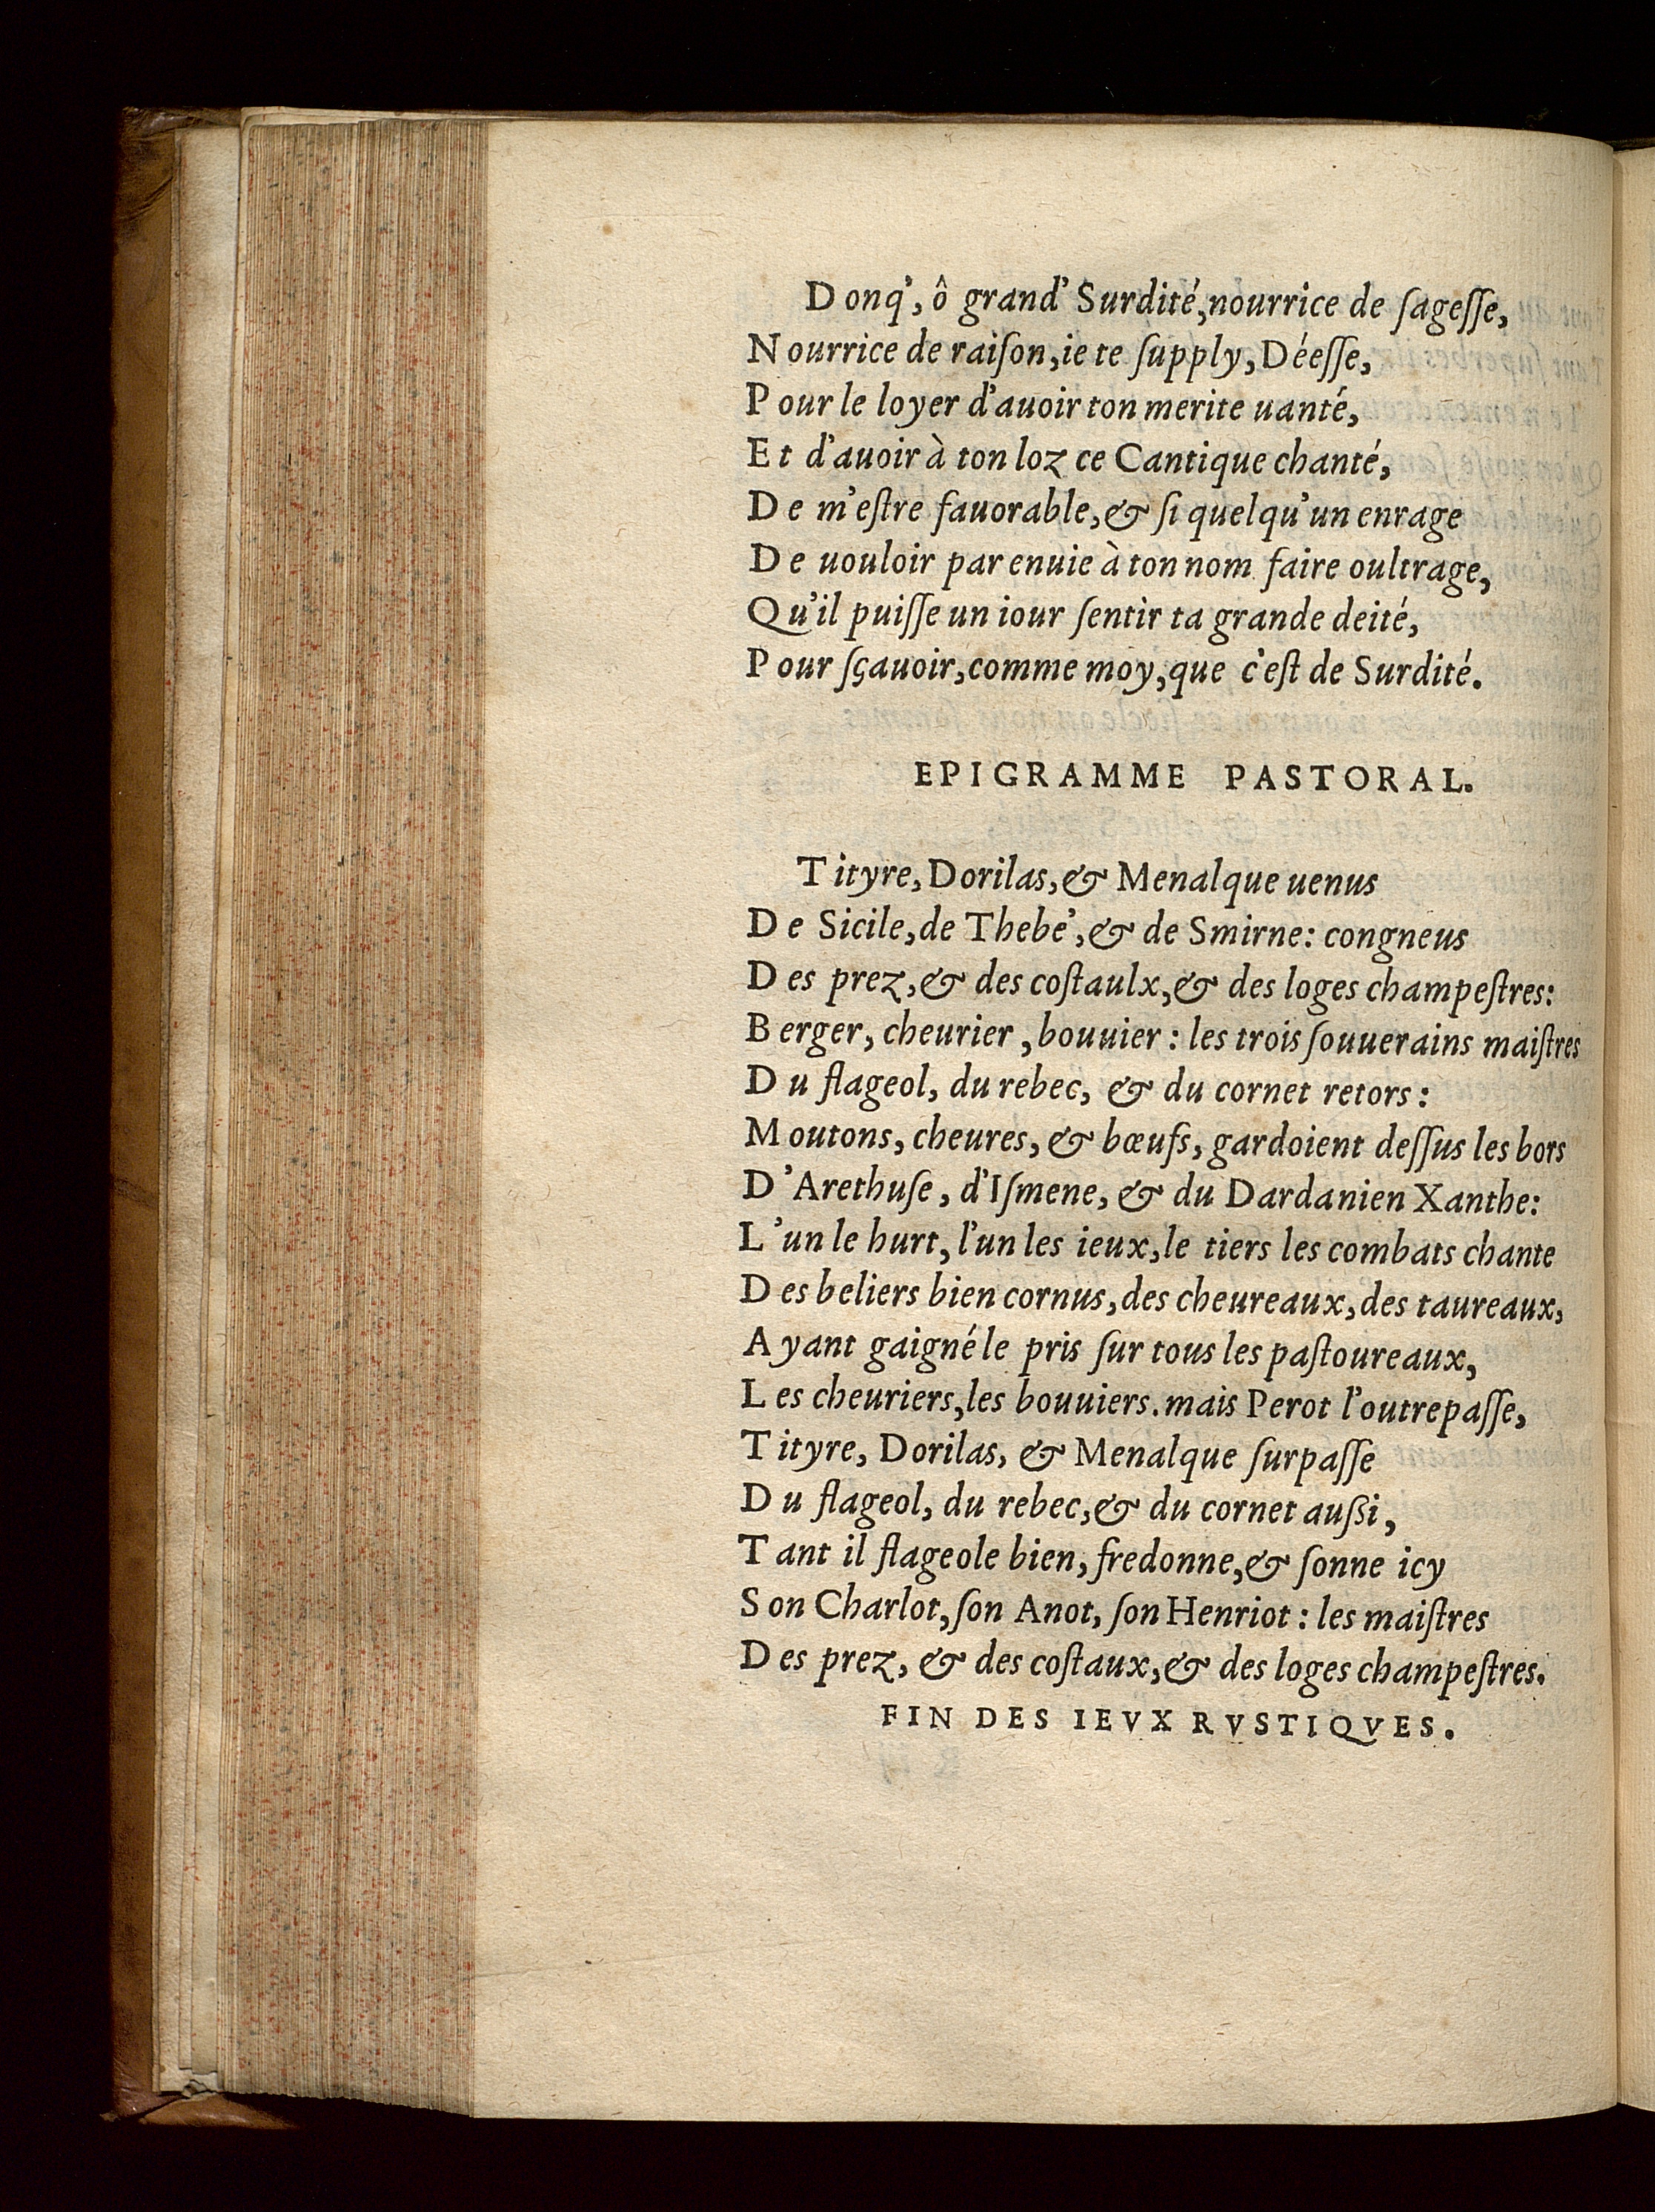 Donq', ô grand' Surdité, nourrice de ſageſſe,
Nourrice de raiſon, ie te ſupply, Déeſſe,
Pour le loyer d'auoir ton merite uanté,
Et d'auoir à ton loz ce Cantique chanté,
De m'eſtre fauorable, & ſi quelqu'un enrage
De uouloir par enuie à ton nom faire oultrage,
Qu'il puiſſe un iour ſentir ta grande deité,
Pour ſçauoir, comme moy, que c'eſt de Surdité.
EPIGRAMME PASTORAL.
Tityre, Dorilas, & Menalque uenus
De Sicile, de Thebe', & de Smirne: congneus
Des prez, & des coſtaulx, & des loges champeſtres:
Berger, cheurier, bouuier: les trois ſouuerains maiſtres
Du flageol, du rebec, & du cornet retors:
Moutons, cheures, & bœufs, gardoient deſſus les bors
D'Arethuſe, d'Iſmene, & du Dardanien Xanthe:
L'un le hurt, l'un les ieux, le tiers les combats chante
Des beliers bien cornus, des cheureaux, des taureaux,
Ayant gaigné le pris ſur tous les paſtoureaux,
Les cheuriers, les bouuiers. mais Perot l'outrepaſſe,
Tityre, Dorilas, & Menalque ſurpaſſe
Du flageol, du rebec, & du cornet auſsi,
Tant il flageole bien, fredonne, & ſonne icy
Son Charlot, ſon Anot, ſon Henriot: les maiſtres
Des prez, & des coſtaux, & des loges champeſtres.
FIN DES IEVX RVSTIQVES.